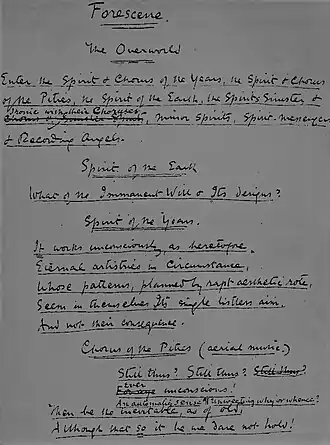 Forescene.
The Overworld
Enter the Spirit & Chorus of the Years, the Spirit & Chorus
of the Pities, the Spirit of the Earth, the Spirits Sinister &
Ironic with their Choruses,
Minor Spirits, Spirit-messengers
& Recording Angels.
Spirit of the Earth
What of the Immanent Will & Its designs?
Spirit of the Years.
It works unconsciously, as heretofore,
Eternal artistries in Circumstance,
Whose patterns, planned by rapt aesthetic rote,
Seem in themselves Its single listless aim,
And not their consequence.
Chorus of the Pities (aerial music.)
Still thus? Still thus? Still thus?
Ever
unconscious!
An automatic sense
Of unweeting why or whence?
Then be the inevitable, as of old,
Although that so it be we dare not hold!